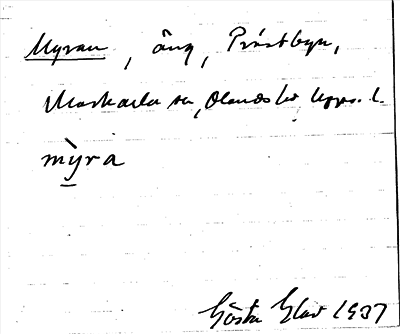 Myran, äng, Prästbyn,
Markarla sn, Olands hd, Upps. l.
mỳra
Gösta Elav 1937